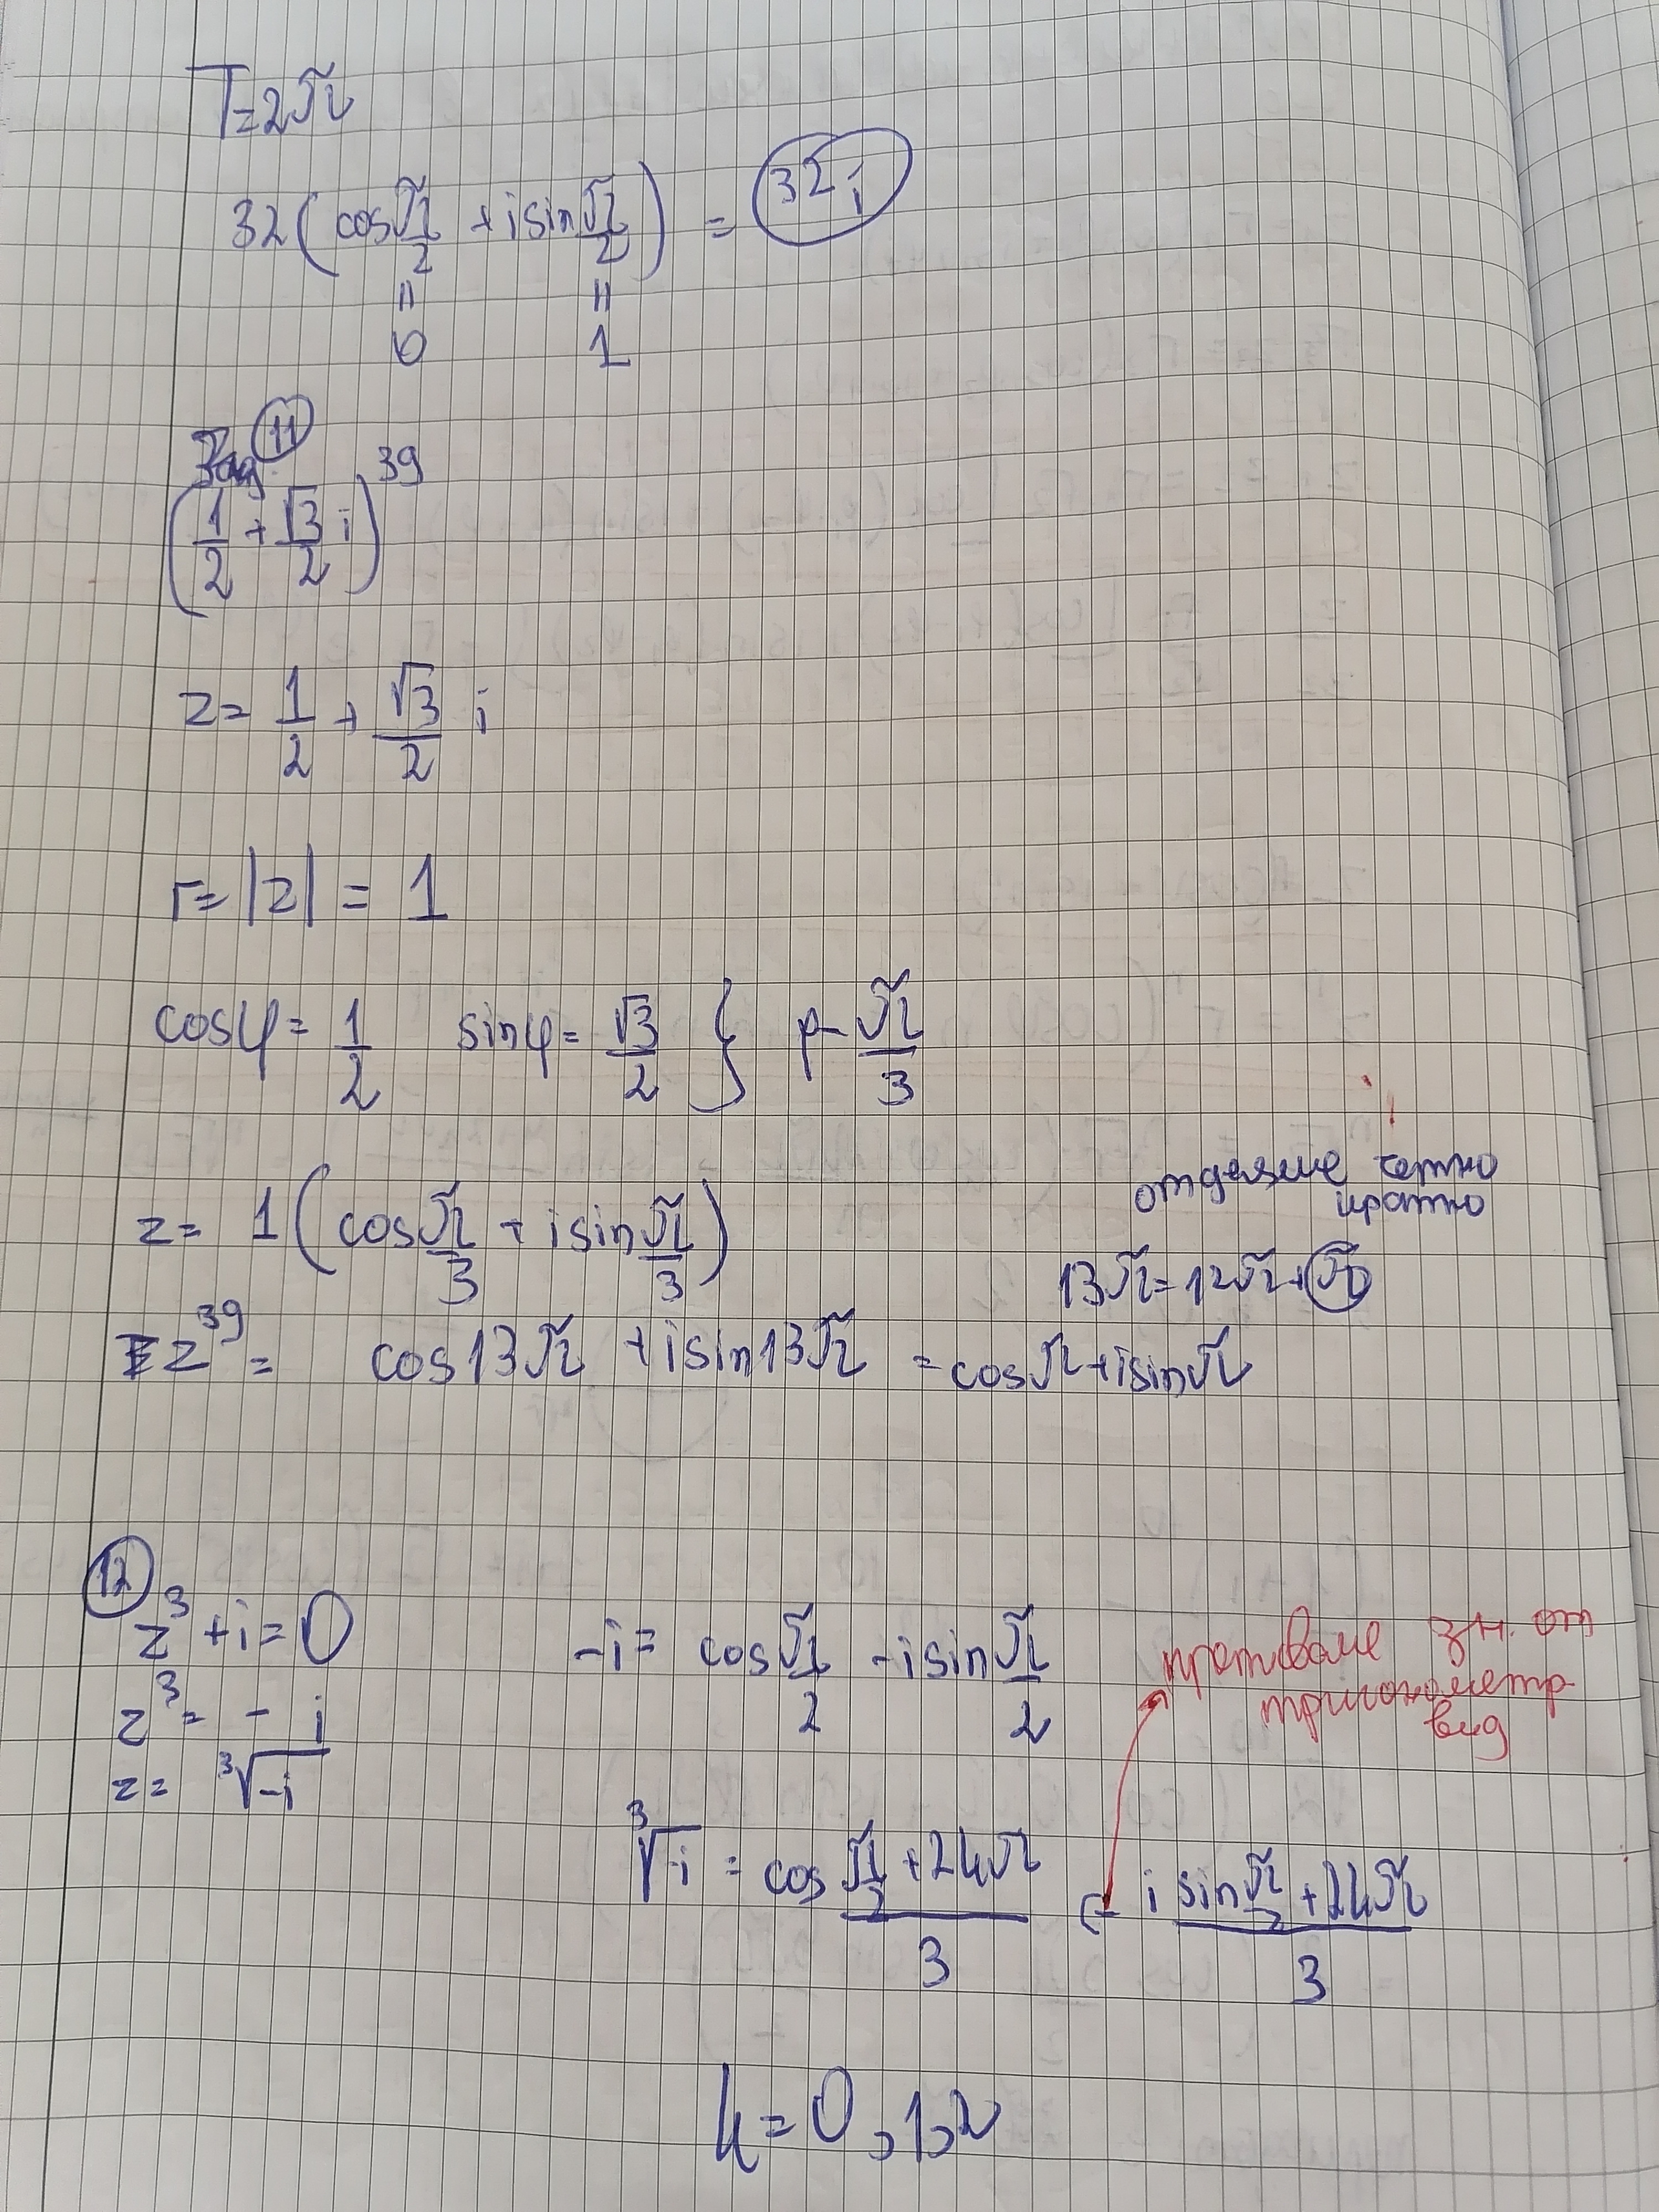 T=2π
32(cos π/2 + i sin π/2) = 32i
= =
0 1
Зад. 11
(1/2 + √3/2 i)^39
z = 1/2 + √3/2 i
r = |z| = 1
cosφ = 1/2 sinφ = √3/2 } φ = π/3
z = 1(cos π/3 + i sin π/3)
отделяме четно
кратно
13π = 12π + π
z^39 = cos13π + i sin13π = cosπ + i sinπ
12
z^3 + i = 0
z^3 = - i
z = ∛-i
-i = cos π/2 - i sin π/2
прехвърляме зн. от
тригонометр.
вид
∛-i = cos (π/2 + 2kπ)/3 - i sin (π/2 + 2kπ)/3
k = 0,1,2